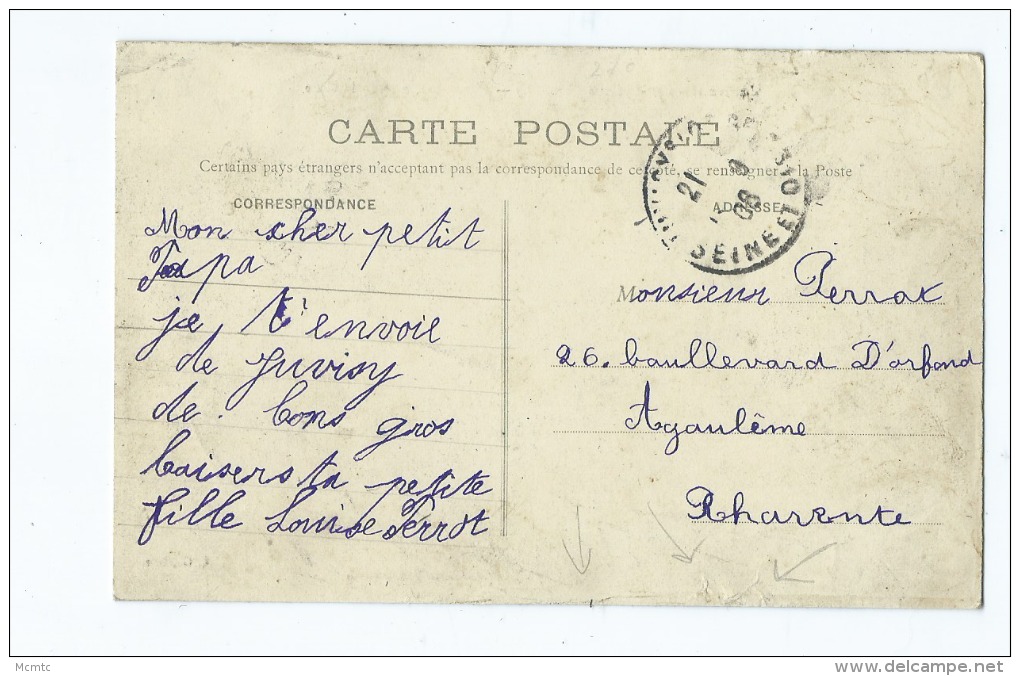 CARTE POSTALE
Certains pays étrangers n'acceptant pas la correspondance de ce côté, se renseigner à la Poste
CORRESPONDANCE
ADRESSE
Mon cher petit
Papa
je t'envoie
de Juvisy
de bons gros
baisers ta petite
fille Louise Perrot
Monsieur Perrot
26. baullevard D'orfond
Agaulême
Charente
21
SEINE ET OISE
Mcmtc
www.delcampe.net